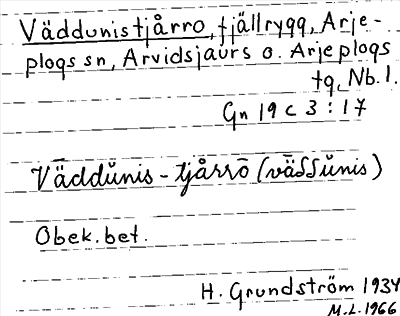 Väddunistjårro, fjällrygg, Arje-
plogs sn, Arvidsjaurs o. Arjeplogs
tg, Nb. l.
Gn 19 c 3 : 17
Väddŭnis - tjårrō (väδδŭnis)
Obek. bet.
H. Grundström 1934
M.L. 1966